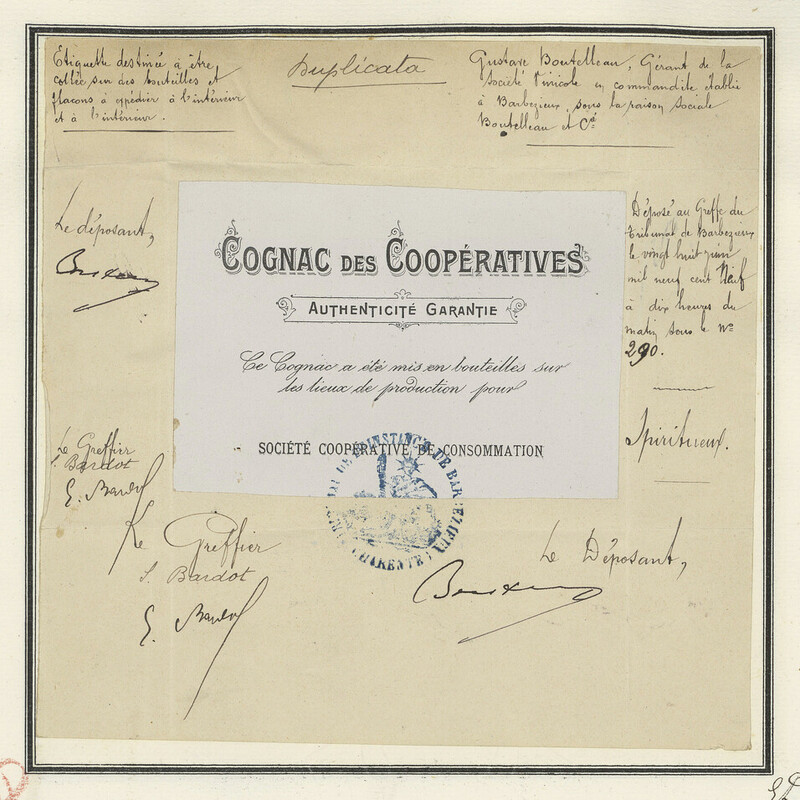 Etiquette destinée à être
collée sur des bouteilles et
flacons à expédier à l'intérieur
et à l'intérieur.
Duplicata
Gustave Boutelleau, Gérant de la
Société Vinicole en commandite établie
à Barbezieux sous la raison sociale
Boutelleau et Cie
Le déposant,
COGNAC DES COOPÉRATIVES
AUTHENTICITÉ GARANTIE
Ce Cognac a été mis en bouteilles sur
les lieux de production pour
SOCIÉTÉ COOPÉRATIVE DE CONSOMMATION
Déposé au Greffe du
Tribunal de Barbezieux
le vingt huit juin
mil neuf cent Neuf
à dix heures du
matin sous le No
290.
Spiritueux.
Le Greffier
Bardot
Le Greffier
Bardot
Le Déposant,
INSTANCE DE BARBEZIEUX
CHARENTE